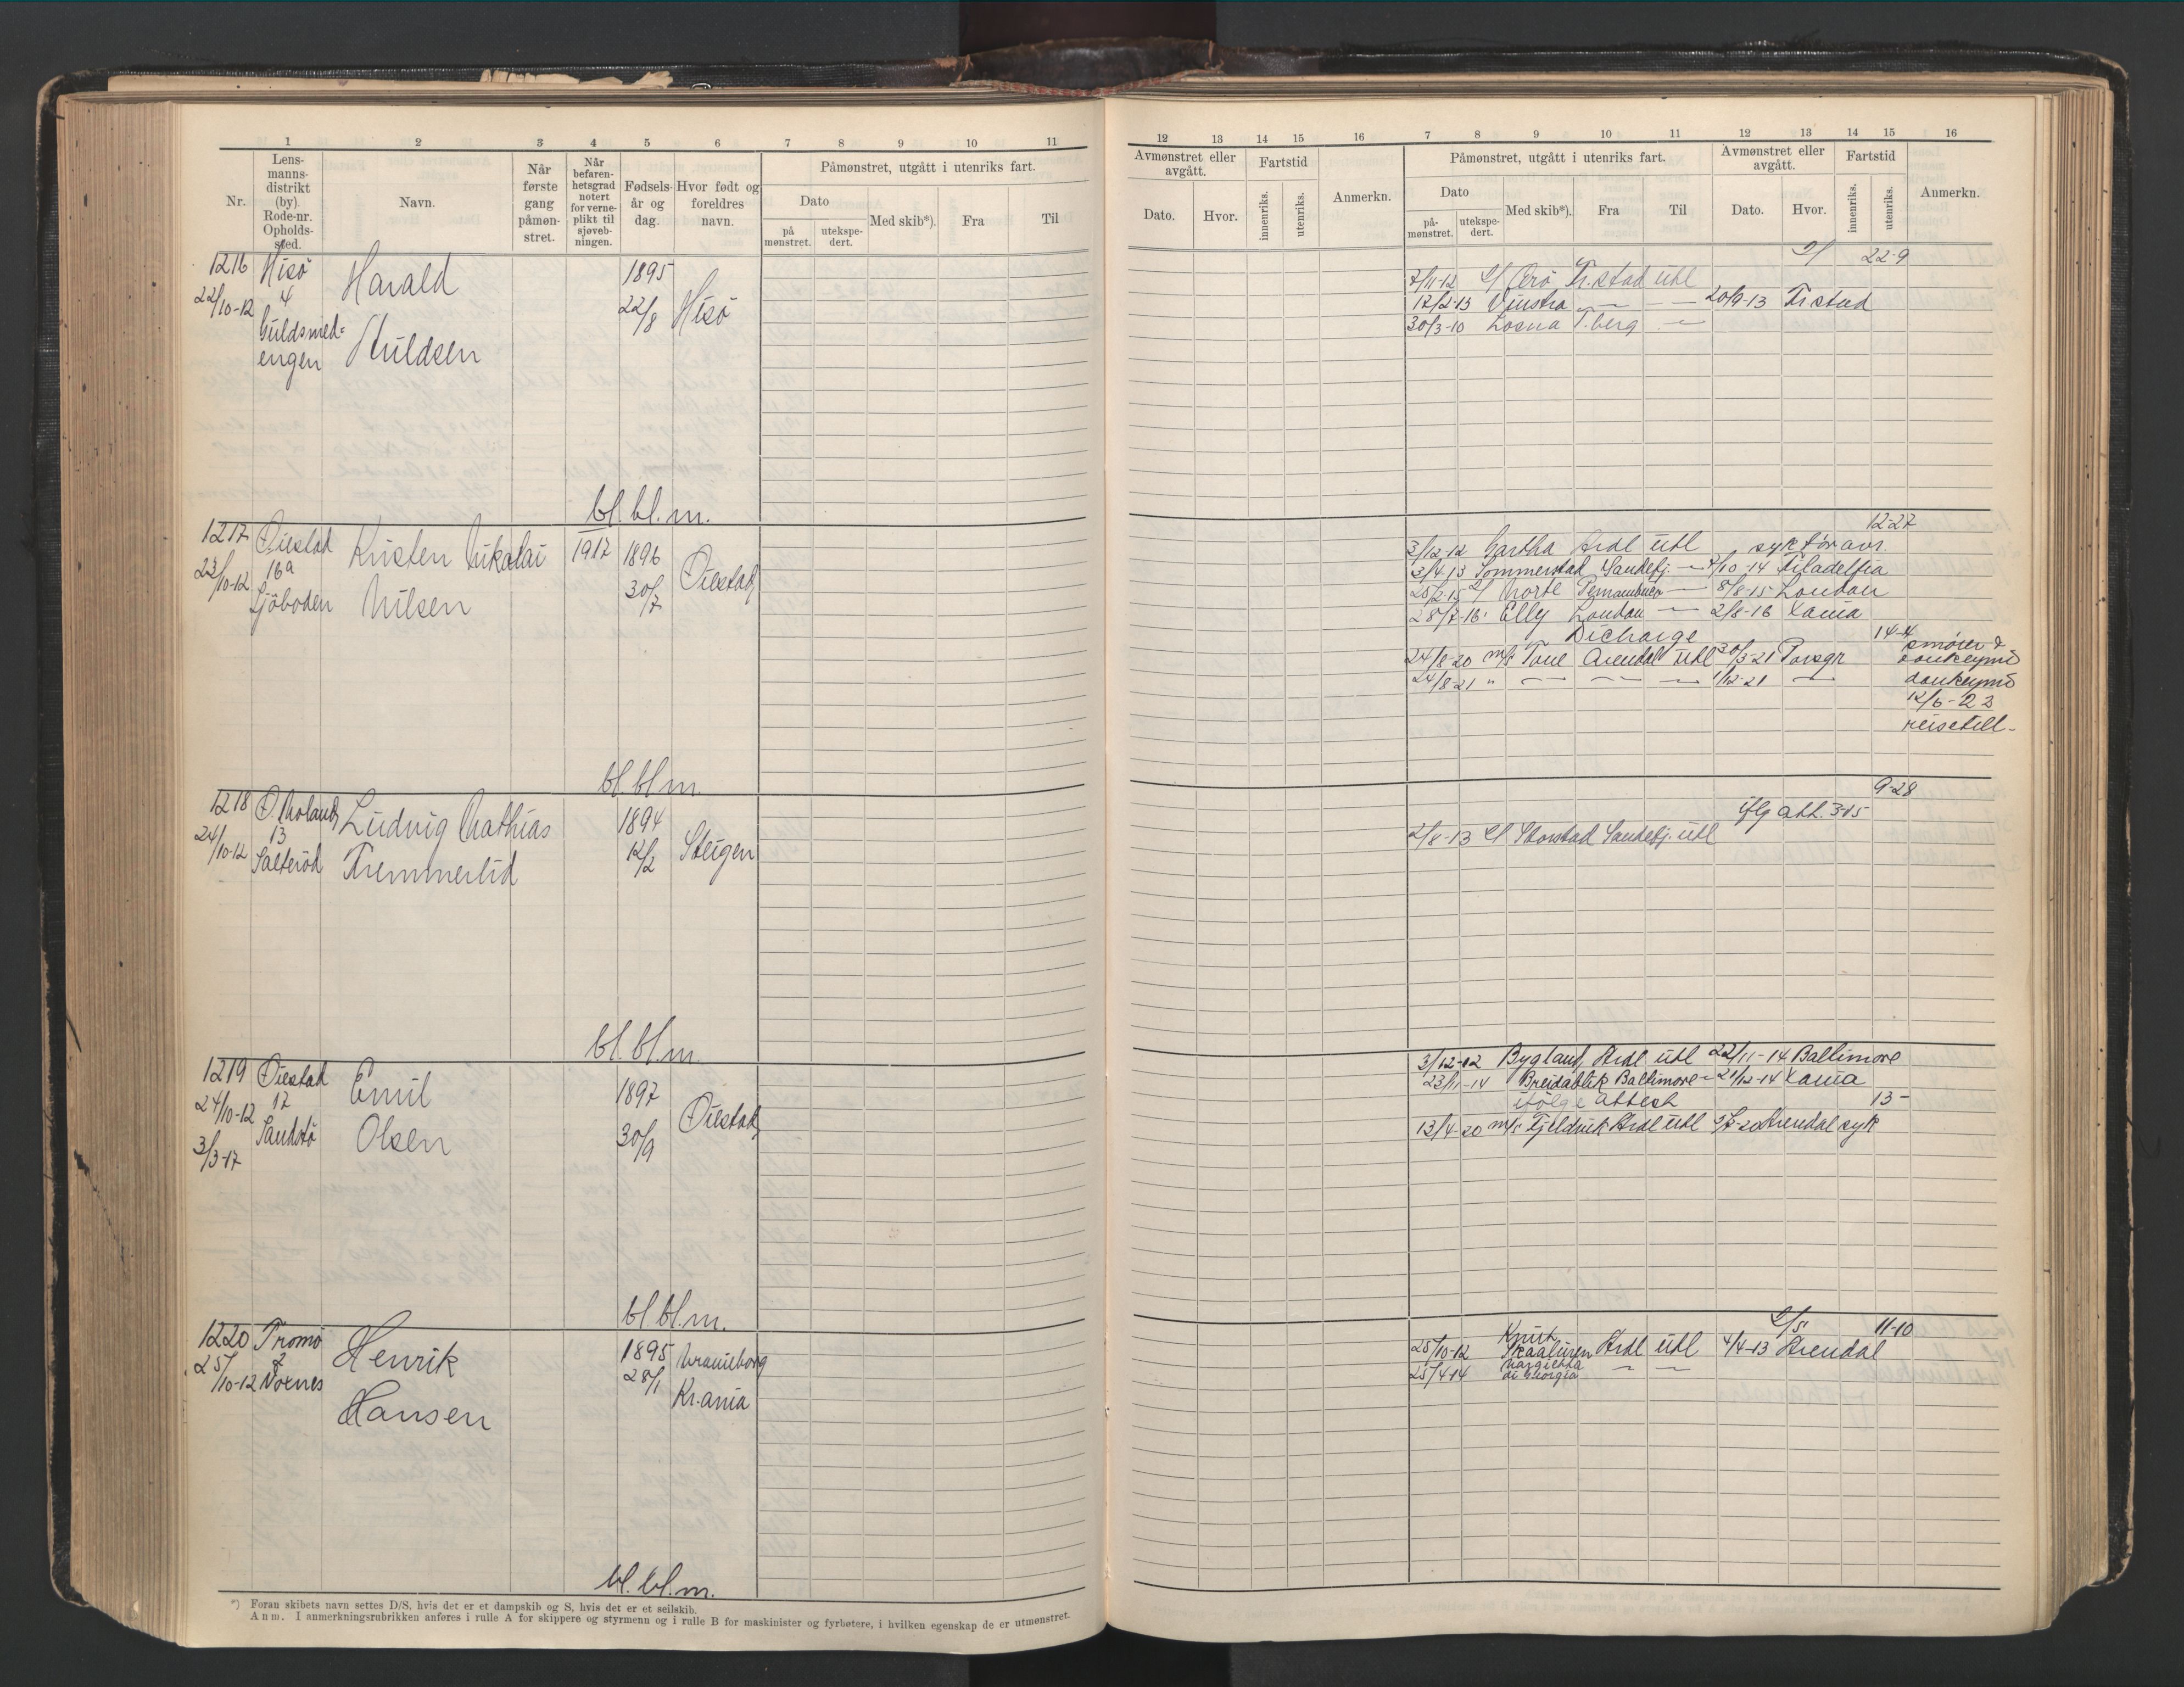 1 2 3 4 5 6 7 8 9 10 11
Nr.
Lens-
manns-
distrikt
(by).
Rode-nr.
Opholds-
sted.
Navn.
Når
første
gang
påmøn-
stret.
Når
befaren-
hetsgrad
notert
for verne-
plikt til
sjøveb-
ningen.
Fødsels-
år og
dag.
Hvor født og
foreldres
navn.
Påmønstret, utgått i utenriks fart.
Dato
på
mønstret.
utekspe-
dert.
Med skib*).
Fra
Til
1216 Hisö 1895
22/10-12 4 Harald 22/8 Hisö
Guldsmed=
engen Huldsen
bl. bl. m.
1217 Öiestad Kristen Nikolai 1917 1896
23/10-12 16a 30/7 Öiestad
Sjöboden Nilsen
bl. bl m.
1218 Ö. Moland Ludvig Mathias 1894
24/10-12 13 12/2 Steigen
Salteröd Tremmerlid
bl. bl. m.
1219 Öiestad Emil 1897
24/10-12 17 Öiestad
3/3-17 Sandstö Olsen 30/9
bl. bl. m.
1220 Tromö Henrik 1895 Uranieborg
25/10-12 2 28/1
Voxnes Hansen Kr.ania
bl. bl. m.
*) Foran skibets navn settes D/S, hvis det er et dampskib og S, hvis det er et seilskib.
Anm. I anmerkningsrubrikken anføres i rulle A for skippere og styrmenn og i rulle B for maskinister og fyrbøtere, i hvilken egenskap de er utmønstret.
12 13 14 15 16 7 8 9 10 11 12 13 14 15 16
Avmønstret eller
avgått.
Dato. Hvor.
Fartstid
innenriks.
utenriks.
Anmerkn.
Påmønstret, utgått i utenriks fart.
Dato
på-
mønstret.
utekspe-
dert.
Med skib*).
Fra
Til
Avmønstret eller
avgått.
Dato. Hvor.
Fartstid
innenriks.
utenriks.
Anmerkn.
22-9
7/11-12 Örö Fr.stad utl
17/2-13 Vinstra — — 20/9-13 Fr.stad
30/3-10 Losna T.berg —
12-27
3/12-12 Gartha Ardl utl syk för avr.
3/4 13 Sommerstad Sandefj. — 2/10-14 Filadelfia
25/2-15 Pernambuco — 8/8-15 London
28/7-16 Elly London — 2/8-16 Xania
Dicharge 14-4
24/8-20 m/s Tone Arendal utl 30/3-21 Porsgr smörer &
donkeymd
24/8-21 " — — — 1/12-21 — donkeymd
12/6-23
reisetill-
9-28
iflg att. 3-15
2/8-13 Storstad Sandefj. utl
3/12-12 Bygland Ardl utl 22/11-14 Baltimore
23/11-14 Breidablik Baltimore — 21/12-14 Xania
ifölge attest 13-
13/4-20 m/s Fjeldvik Ardl utl Arendal syk
11-10
25/10-12 Knut
Skaaluren Ardl utl 4/4-13 Arendal
25/4-14 di Georgia — —